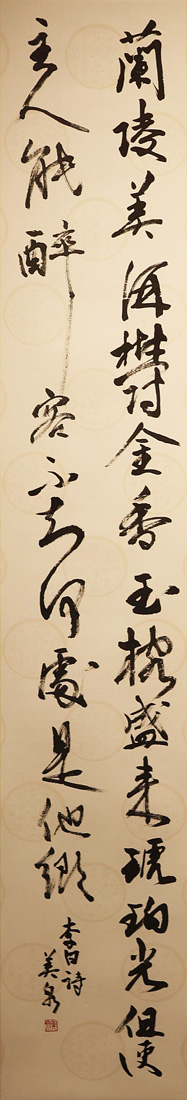 蘭陵美酒鬱金香玉椀盛来琥珀光但使
主人能醉客不知何處是他鄉
李白詩
美泉